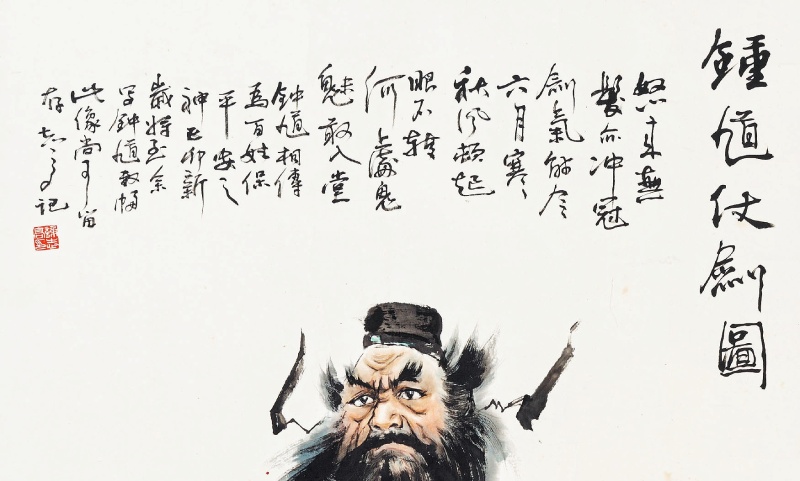 鍾馗仗劍圖
怒来無
髮亦冲冠
劍氣能令
六月寒
秋風頻起
眼不轉
何處鬼
魅敢入堂
鍾馗相傳
為百姓保
平安之
神己卯新
歲將至余
写鍾馗数幅
此像尚可留
存 記